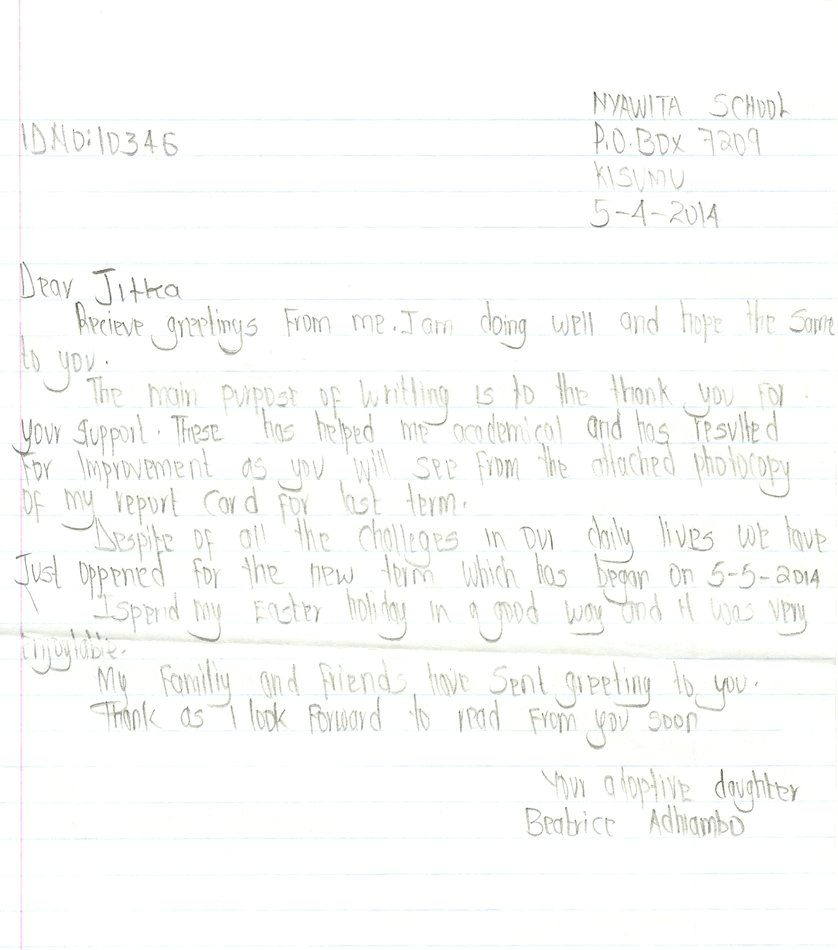 NYAWITA SCHOOL
ID.NO:10346
P.O.BOX 7209
KISUMU
5-4-2014
Dear Jitka
Recieve greetings from me. I am doing well and hope the same
to you.
The main purpose of writting is to the thank you for
your support. These has helped me academical and has resulted
for improvement as you will see from the attached photocopy
of my report card for last term.
Despite of all the challeges in our daily lives we have
Just oppened for the new term which has began on 5-5-2014
I spend my Easter holiday in a good way and it was very
Enjoytable.
My Familiy and friends have sent greeting to you.
Thank as I look forward to read from you soon
Your adoptive daughter
Beatrice Adhiambo